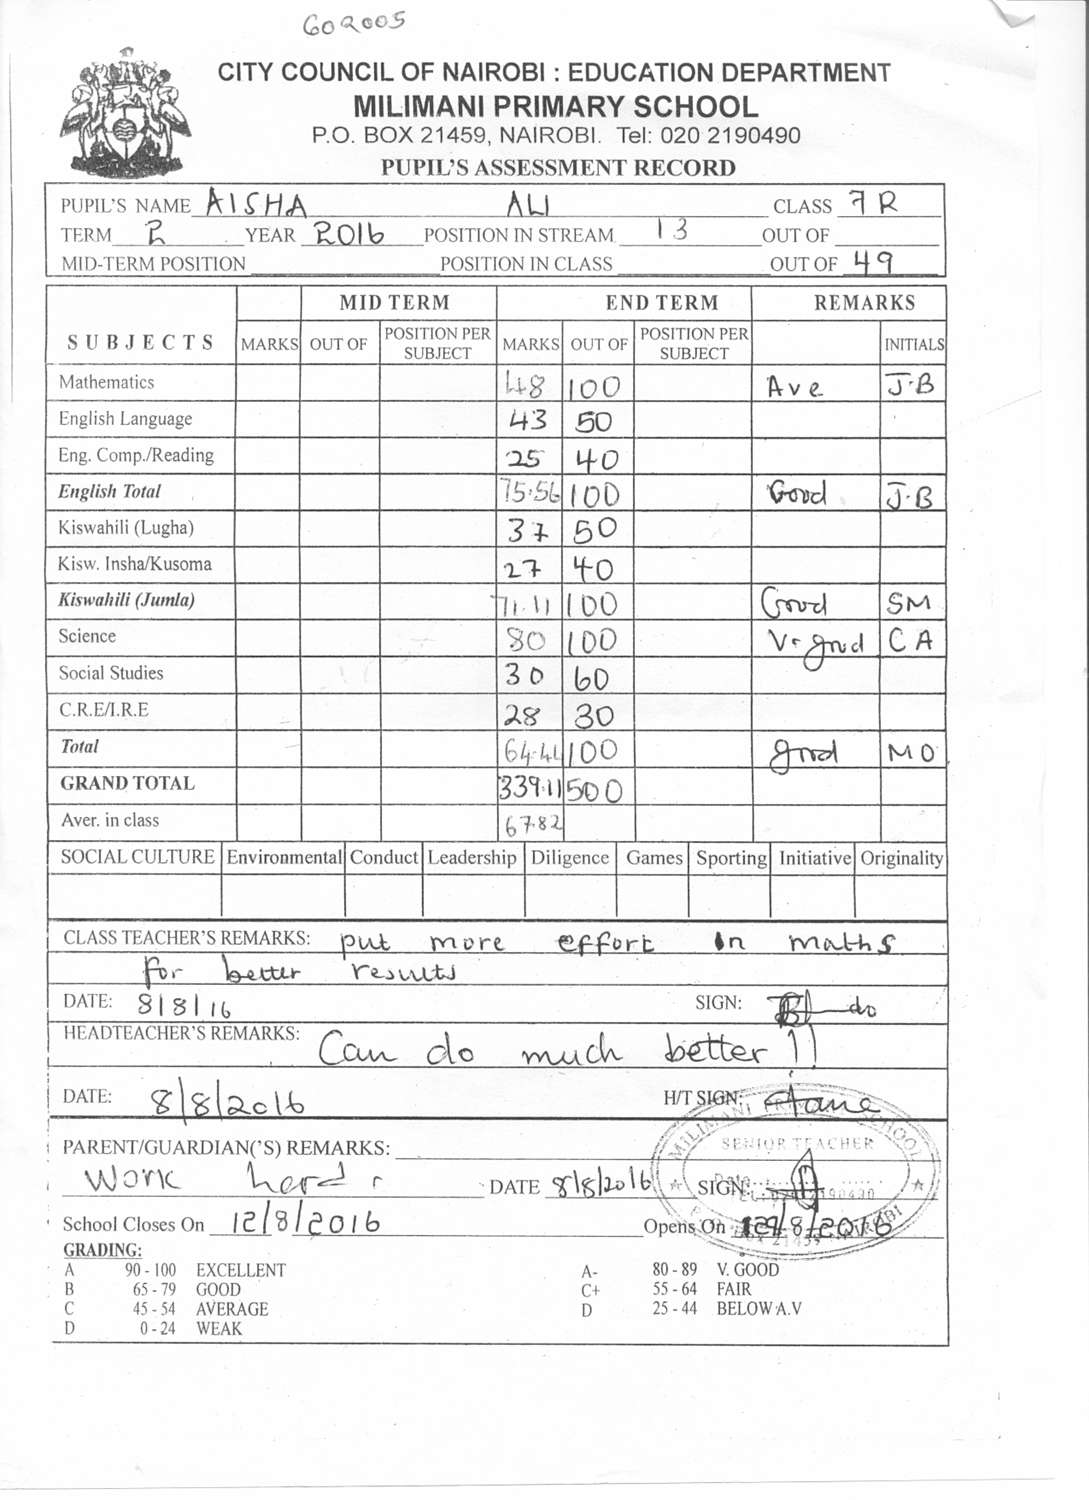 602005
CITY COUNCIL OF NAIROBI : EDUCATION DEPARTMENT
MILIMANI PRIMARY SCHOOL
P.O. BOX 21459, NAIROBI. Tel: 020 2190490
PUPIL'S ASSESSMENT RECORD
PUPIL'S NAME AISHA ALI CLASS 7R
TERM 2 YEAR 2016 POSITION IN STREAM 13 OUT OF
MID-TERM POSITION POSITION IN CLASS OUT OF 49
MID TERM END TERM REMARKS
SUBJECTS MARKS OUT OF POSITION PER SUBJECT MARKS OUT OF POSITION PER SUBJECT INITIALS
Mathematics 48 100 Ave J.B
English Language 43 50
Eng. Comp./Reading 25 40
English Total 75.56 100 Good J.B
Kiswahili (Lugha) 37 50
Kisw. Insha/Kusoma 27 40
Kiswahili (Jumla) 71.11 100 Good SM
Science 80 100 V. good C A
Social Studies 30 60
C.R.E/I.R.E 28 30
Total 64.44 100 good M O
GRAND TOTAL 339.11 500
Aver. in class 67.82
SOCIAL CULTURE Environmental Conduct Leadership Diligence Games Sporting Initiative Originality
CLASS TEACHER'S REMARKS: put more effort in maths
for better results
DATE: 8/8/16 SIGN:
HEADTEACHER'S REMARKS: Can do much better !!
DATE: 8/8/2016 H/T SIGN:
SENIOR TEACHER
PARENT/GUARDIAN('S) REMARKS:
Work hard DATE 8/8/2016 SIGN:
School Closes On 12/8/2016 Opens On
GRADING:
A 90 - 100 EXCELLENT A- 80 - 89 V. GOOD
B 65 - 79 GOOD C+ 55 - 64 FAIR
C 45 - 54 AVERAGE D 25 - 44 BELOW A.V
D 0 - 24 WEAK